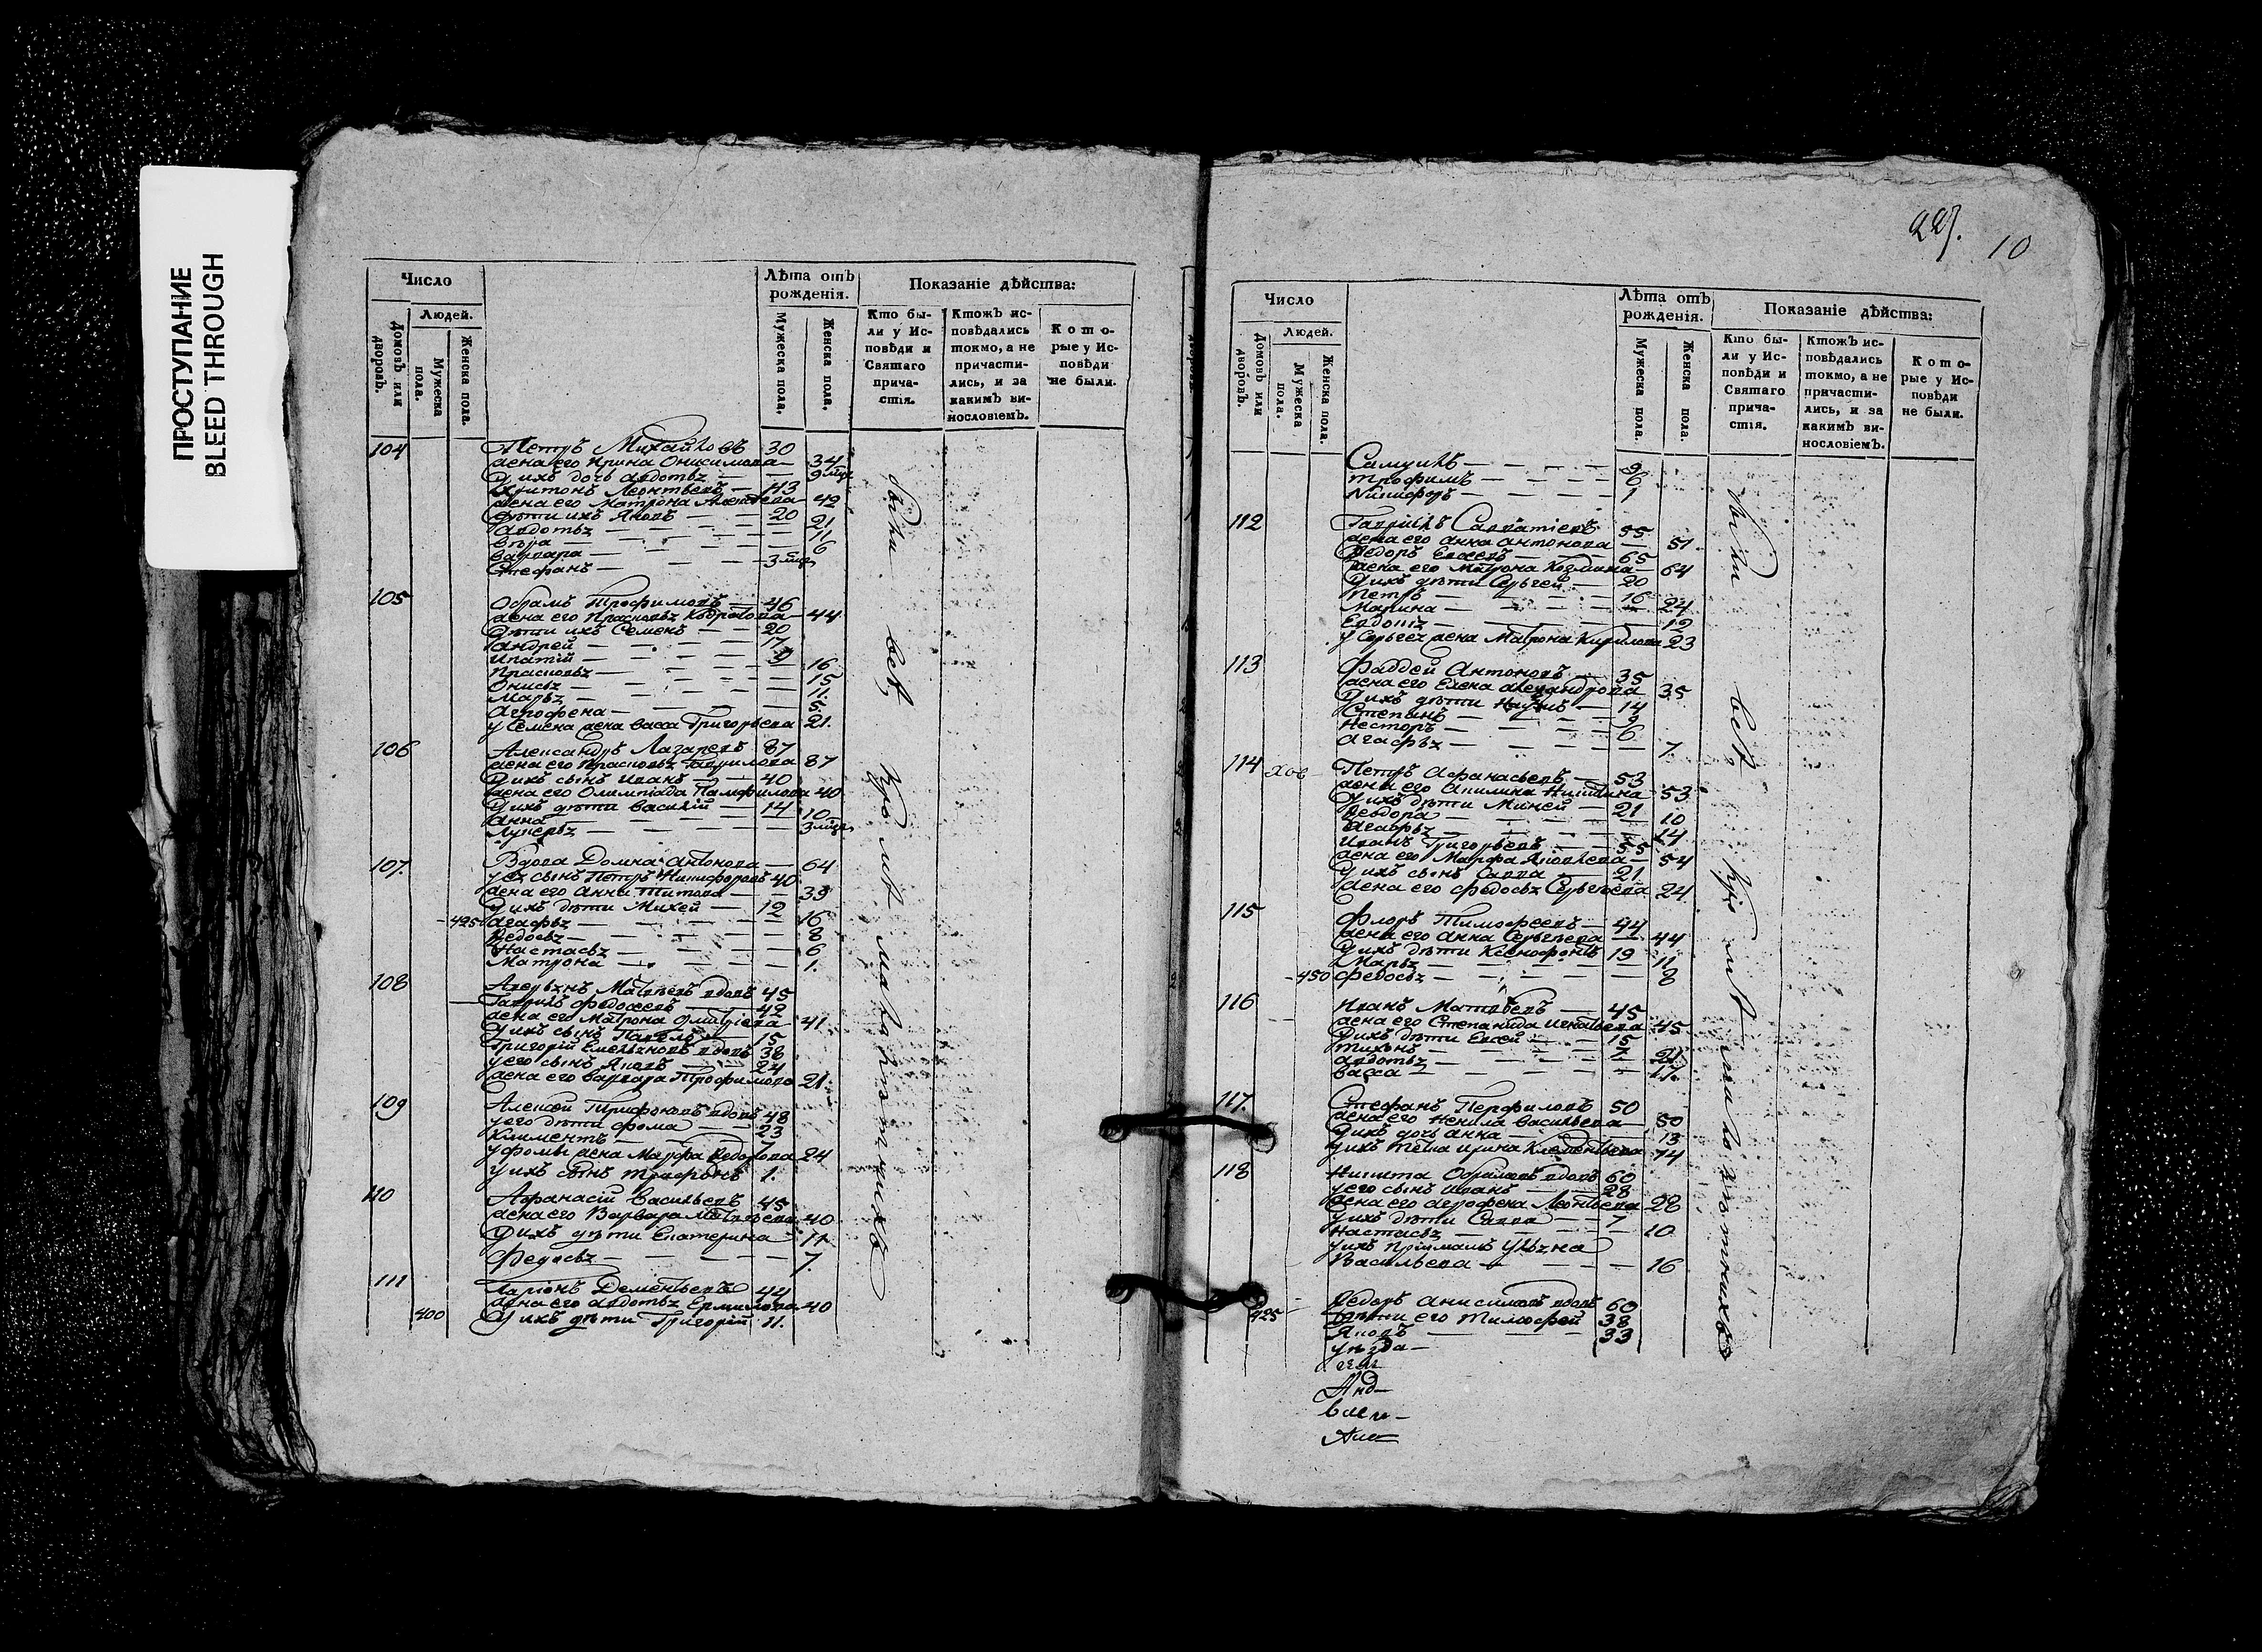 ПРОСТУПАНИЕ
BLEED THROUGH
Число
Лѣта отъ рожденія.
Показаніе дѣйства:
Домовъ или дворовъ.
Людей.
Мужеска пола.
Женска пола.
Мужеска пола.
Женска пола.
Кто были у Исповѣди и Святаго причастія.
Ктожъ исповѣдались токмо, а не причастились, и за какимъ винословіемъ.
Которые у Исповѣди не были.
104 Петръ Михайловъ 30
жена его Ирина Онисимова 34
У ихъ дочь авдотья 9 мцъ
Харитонъ Леонтьевъ 43
жена его Матрона 42
Дѣти ихъ Яковъ 20
авдотья 21
вѣра 11
варвара 6
Стефанъ 3 мцъ
105 Обрамъ Трофимовъ 46
жена его Прасковья 44
Дѣти ихъ Семенъ 20
андрей 17
ипатій 9
Прасковья 16
Онисья 15
Марья 11.
агрофена 5.
у Семена жена васса Григорьева 21.
106 Александръ Лазаревъ 87
жена его Прасковья Гаврилова 87
У ихъ сынъ иванъ 40
жена его Олимпіада Памфилова 40
У ихъ дѣти василій 14
анна 10
Лукерья 3 мцъ
107. Вдова Домна антонова 64
у ея сынъ Петръ Никифоровъ 40
жена его Анна Титова 39
У ихъ дѣти Михей 12
425 агафья 16
Ѳедосья 8
Настасья 6
Матрона 1.
108 Аверьянъ Матвѣевъ вдовъ 45
Гаврилъ Федосеевъ 42
жена его Матрона Дмитріева 41
У ихъ сынъ Павелъ 15
Григорій Емельяновъ вдовъ 38
у его сынъ Яковъ 24
жена его варвара Трофимова 21.
109 Алексѣй Трифоновъ вдовъ 48
у его дѣти фома 23
Климентъ 7
у фомы жена Марфа Ѳедорова 24
у ихъ сынъ трифонъ 1.
110 Афанасій васильевъ 45
жена его Варвара Матвѣева 40
У ихъ дѣти Екатерина 11
Федосья 7.
111 Ларіонъ Дементьевъ 44
жена его авдотья Ермилова 40
400 У ихъ дѣти Григорій 11.
были всѣ кромѣ малолѣтнихъ
227.
10
Число
Лѣта отъ рожденія.
Показаніе дѣйства:
Домовъ или дворовъ.
Людей.
Мужеска пола.
Женска пола.
Мужеска пола.
Женска пола.
Кто были у Исповѣди и Святаго причастія.
Ктожъ исповѣдались токмо, а не причастились, и за какимъ винословіемъ.
Которые у Исповѣди не были.
Самуилъ 9
трофимъ 6
Никифоръ 1
112 Гаврилъ Савватіевъ 55
жена его анна антонова 51
Ѳедоръ Евсеевъ 65
жена его Матрона Козмина 64
У ихъ дѣти Сергей 20
Петръ 16
Марина 24
Евдокія 12
у Сергея жена Матрона Кирилова 23
113 Фаддей Антоновъ 35
жена его Елена александрова 35
У ихъ дѣти Наумъ 14
Степанъ 9
Несторъ 6
агафья 7.
114 Петръ Афанасьевъ 53
жена его Акилина Никитина 53
У ихъ дѣти Михей 21
Ѳеодора 10
агафья 14
Иванъ Григорьевъ 55
жена его Марфа Яковлева 54
У ихъ сынъ Савва 21
жена его федосья Сергеева 24
115 Флоръ Тимофеевъ 44
жена его анна Сергеева 44
У ихъ дѣти Ксенофонтъ 19
Марья 11
450 федосья 8
116 Иванъ Матвѣевъ 45
жена его Степанида игнатьева 45
У ихъ дѣти Евсей 15
тихонъ 7
авдотья 21
васса 17.
117. Стефанъ Перфиловъ 50
жена его Ненила васильева 50
У ихъ дочь анна 13
у ихъ теща ирина Клементьева 74
118 Никита Обрамовъ вдовъ 60
у его сынъ иванъ 28
жена его агрофена Леонтьева 28
У ихъ дѣти Савва 7
Настасья 10
у ихъ пріимышъ Ульяна
Васильева 16
Ѳедоръ анисимовъ вдовъ 60
425 Дѣти его тимофей 38
Яковъ 33
уѣзда
Анд
васи
были всѣ кромѣ малолѣтнихъ